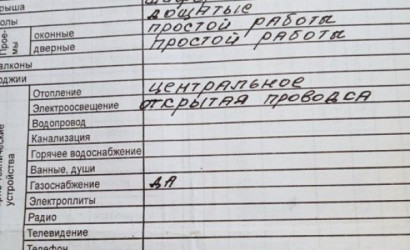 рыша
олы дощатые
Прое-
мы
оконные простой работы
дверные простой работы
алконы
оджии
Отопление центральное
Электроосвещение открытая проводса
Водопровод
Канализация
Горячее водоснабжение
Ванные, души
Газоснабжение да
Электроплиты
Радио
Телевидение
Телефон
устройства